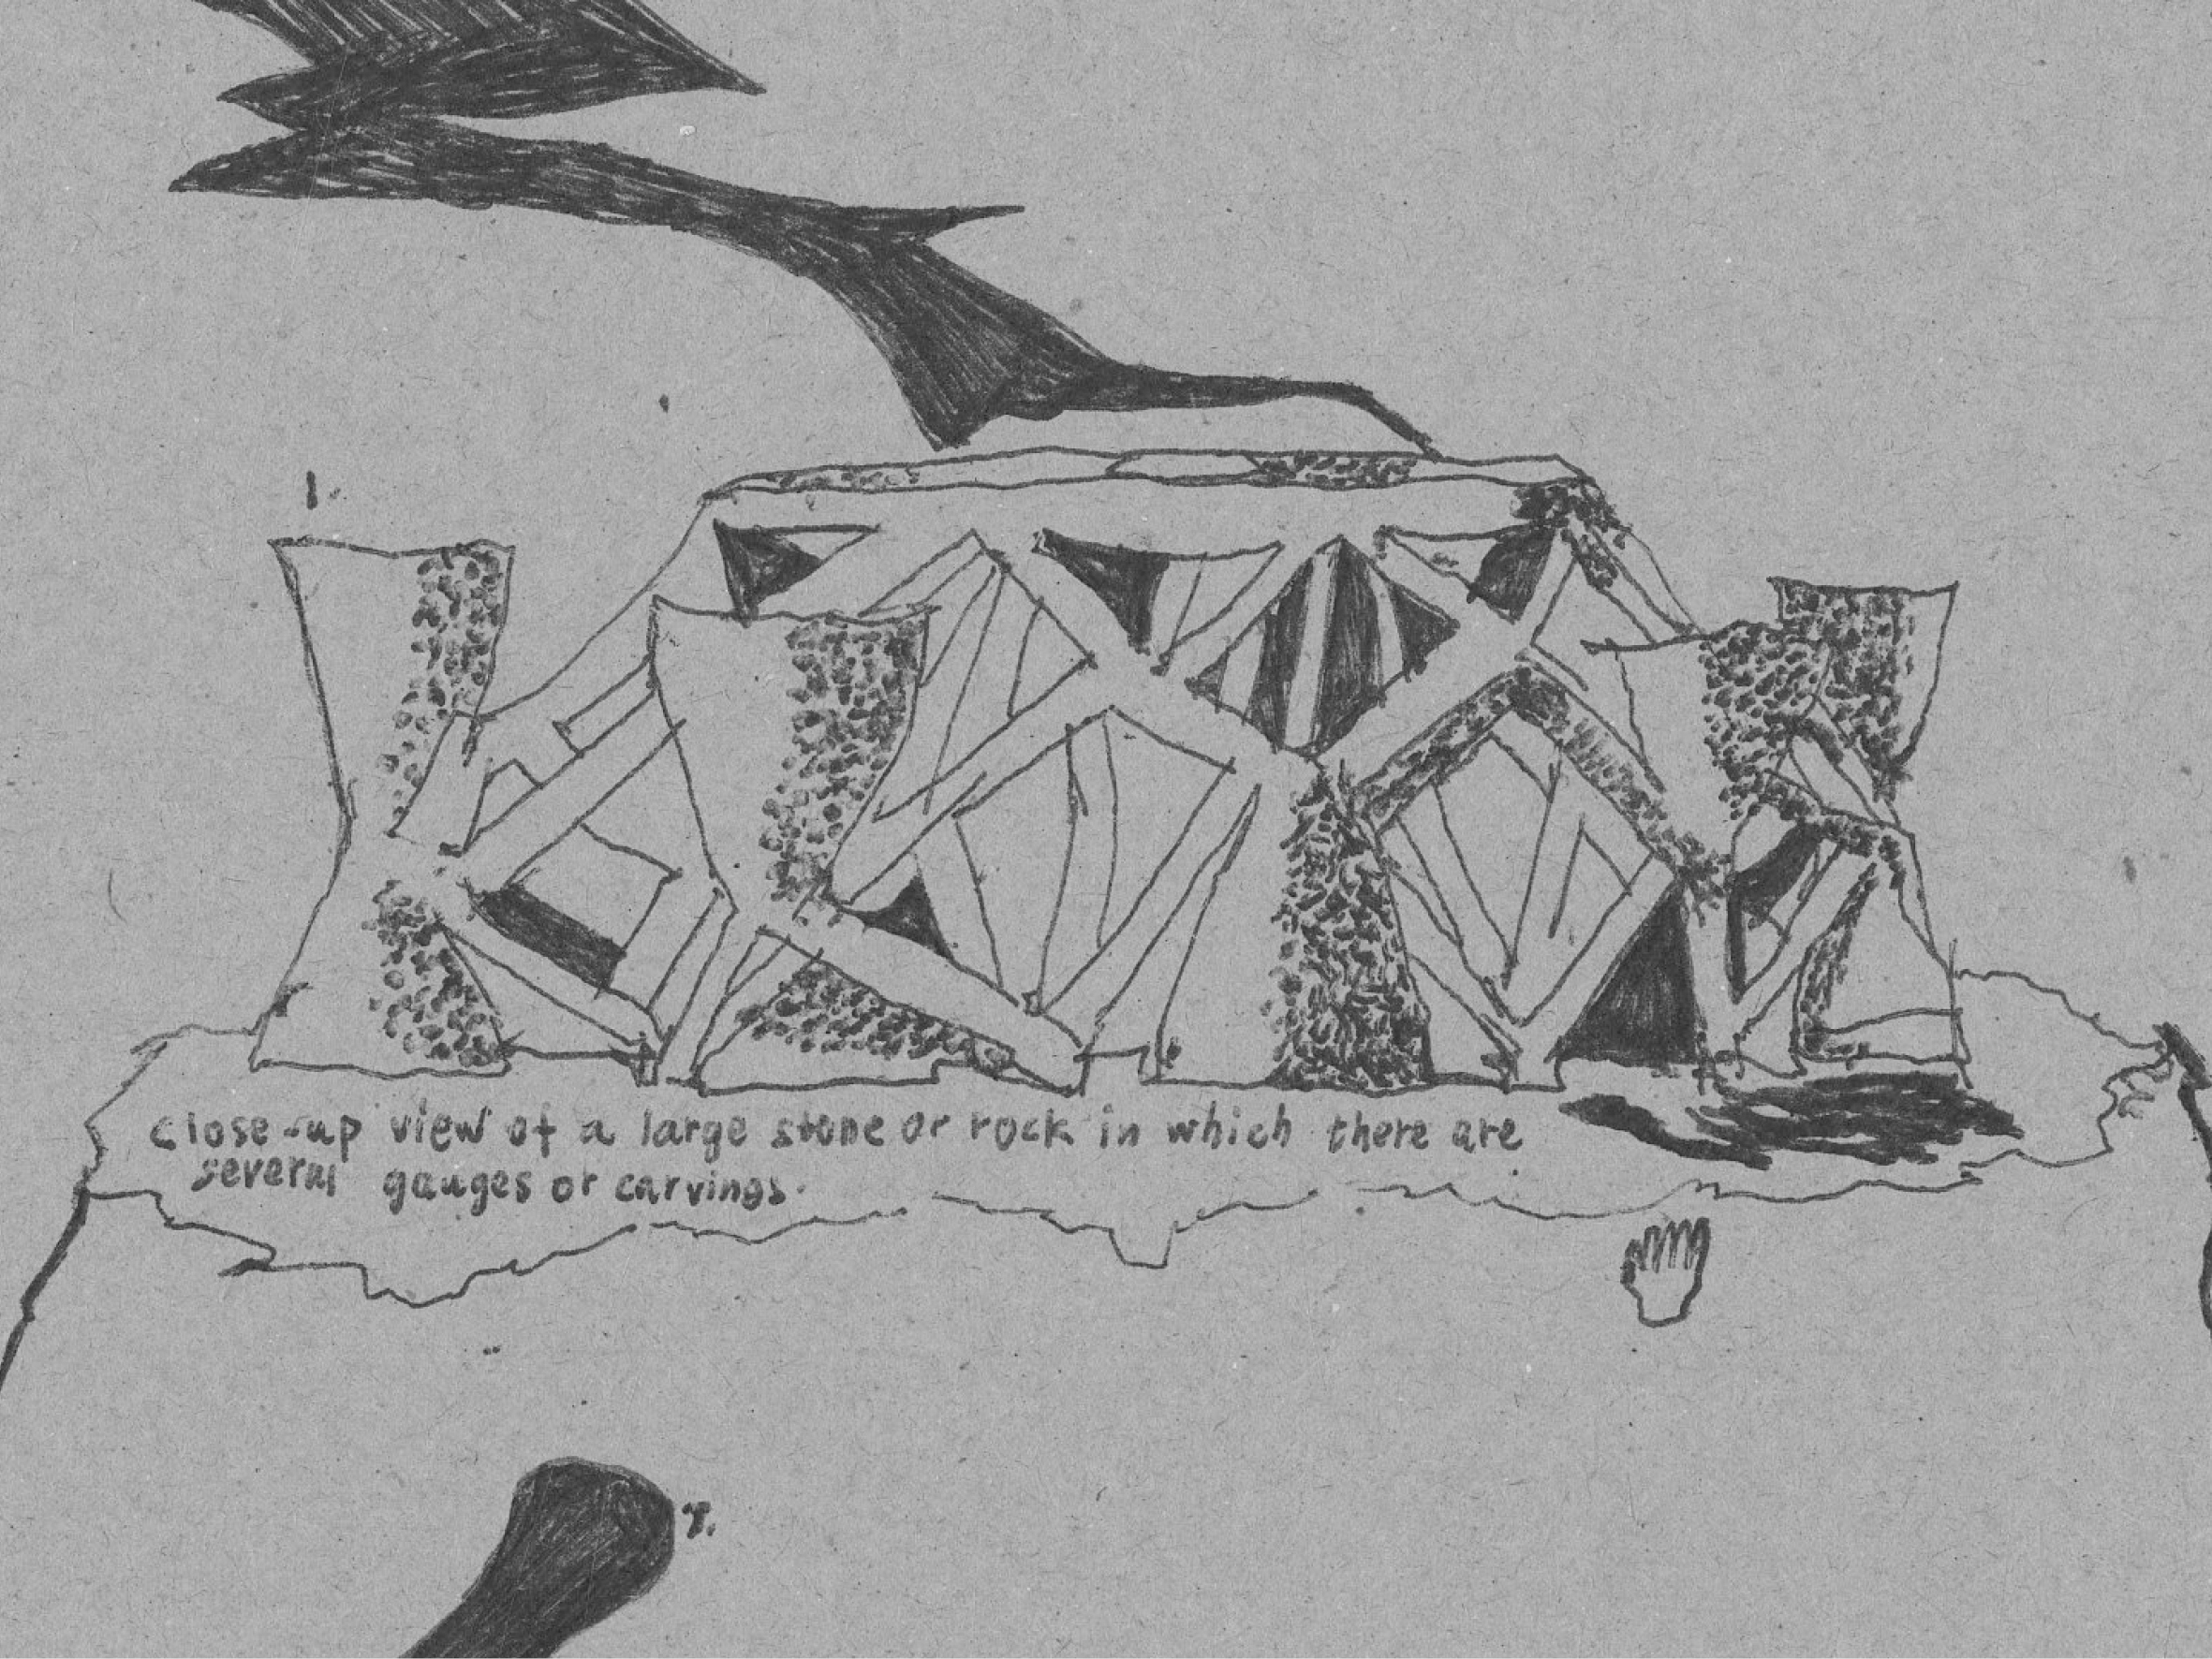 1.
close-up view of a large stone or rock in which there are
several gauges or carvings.